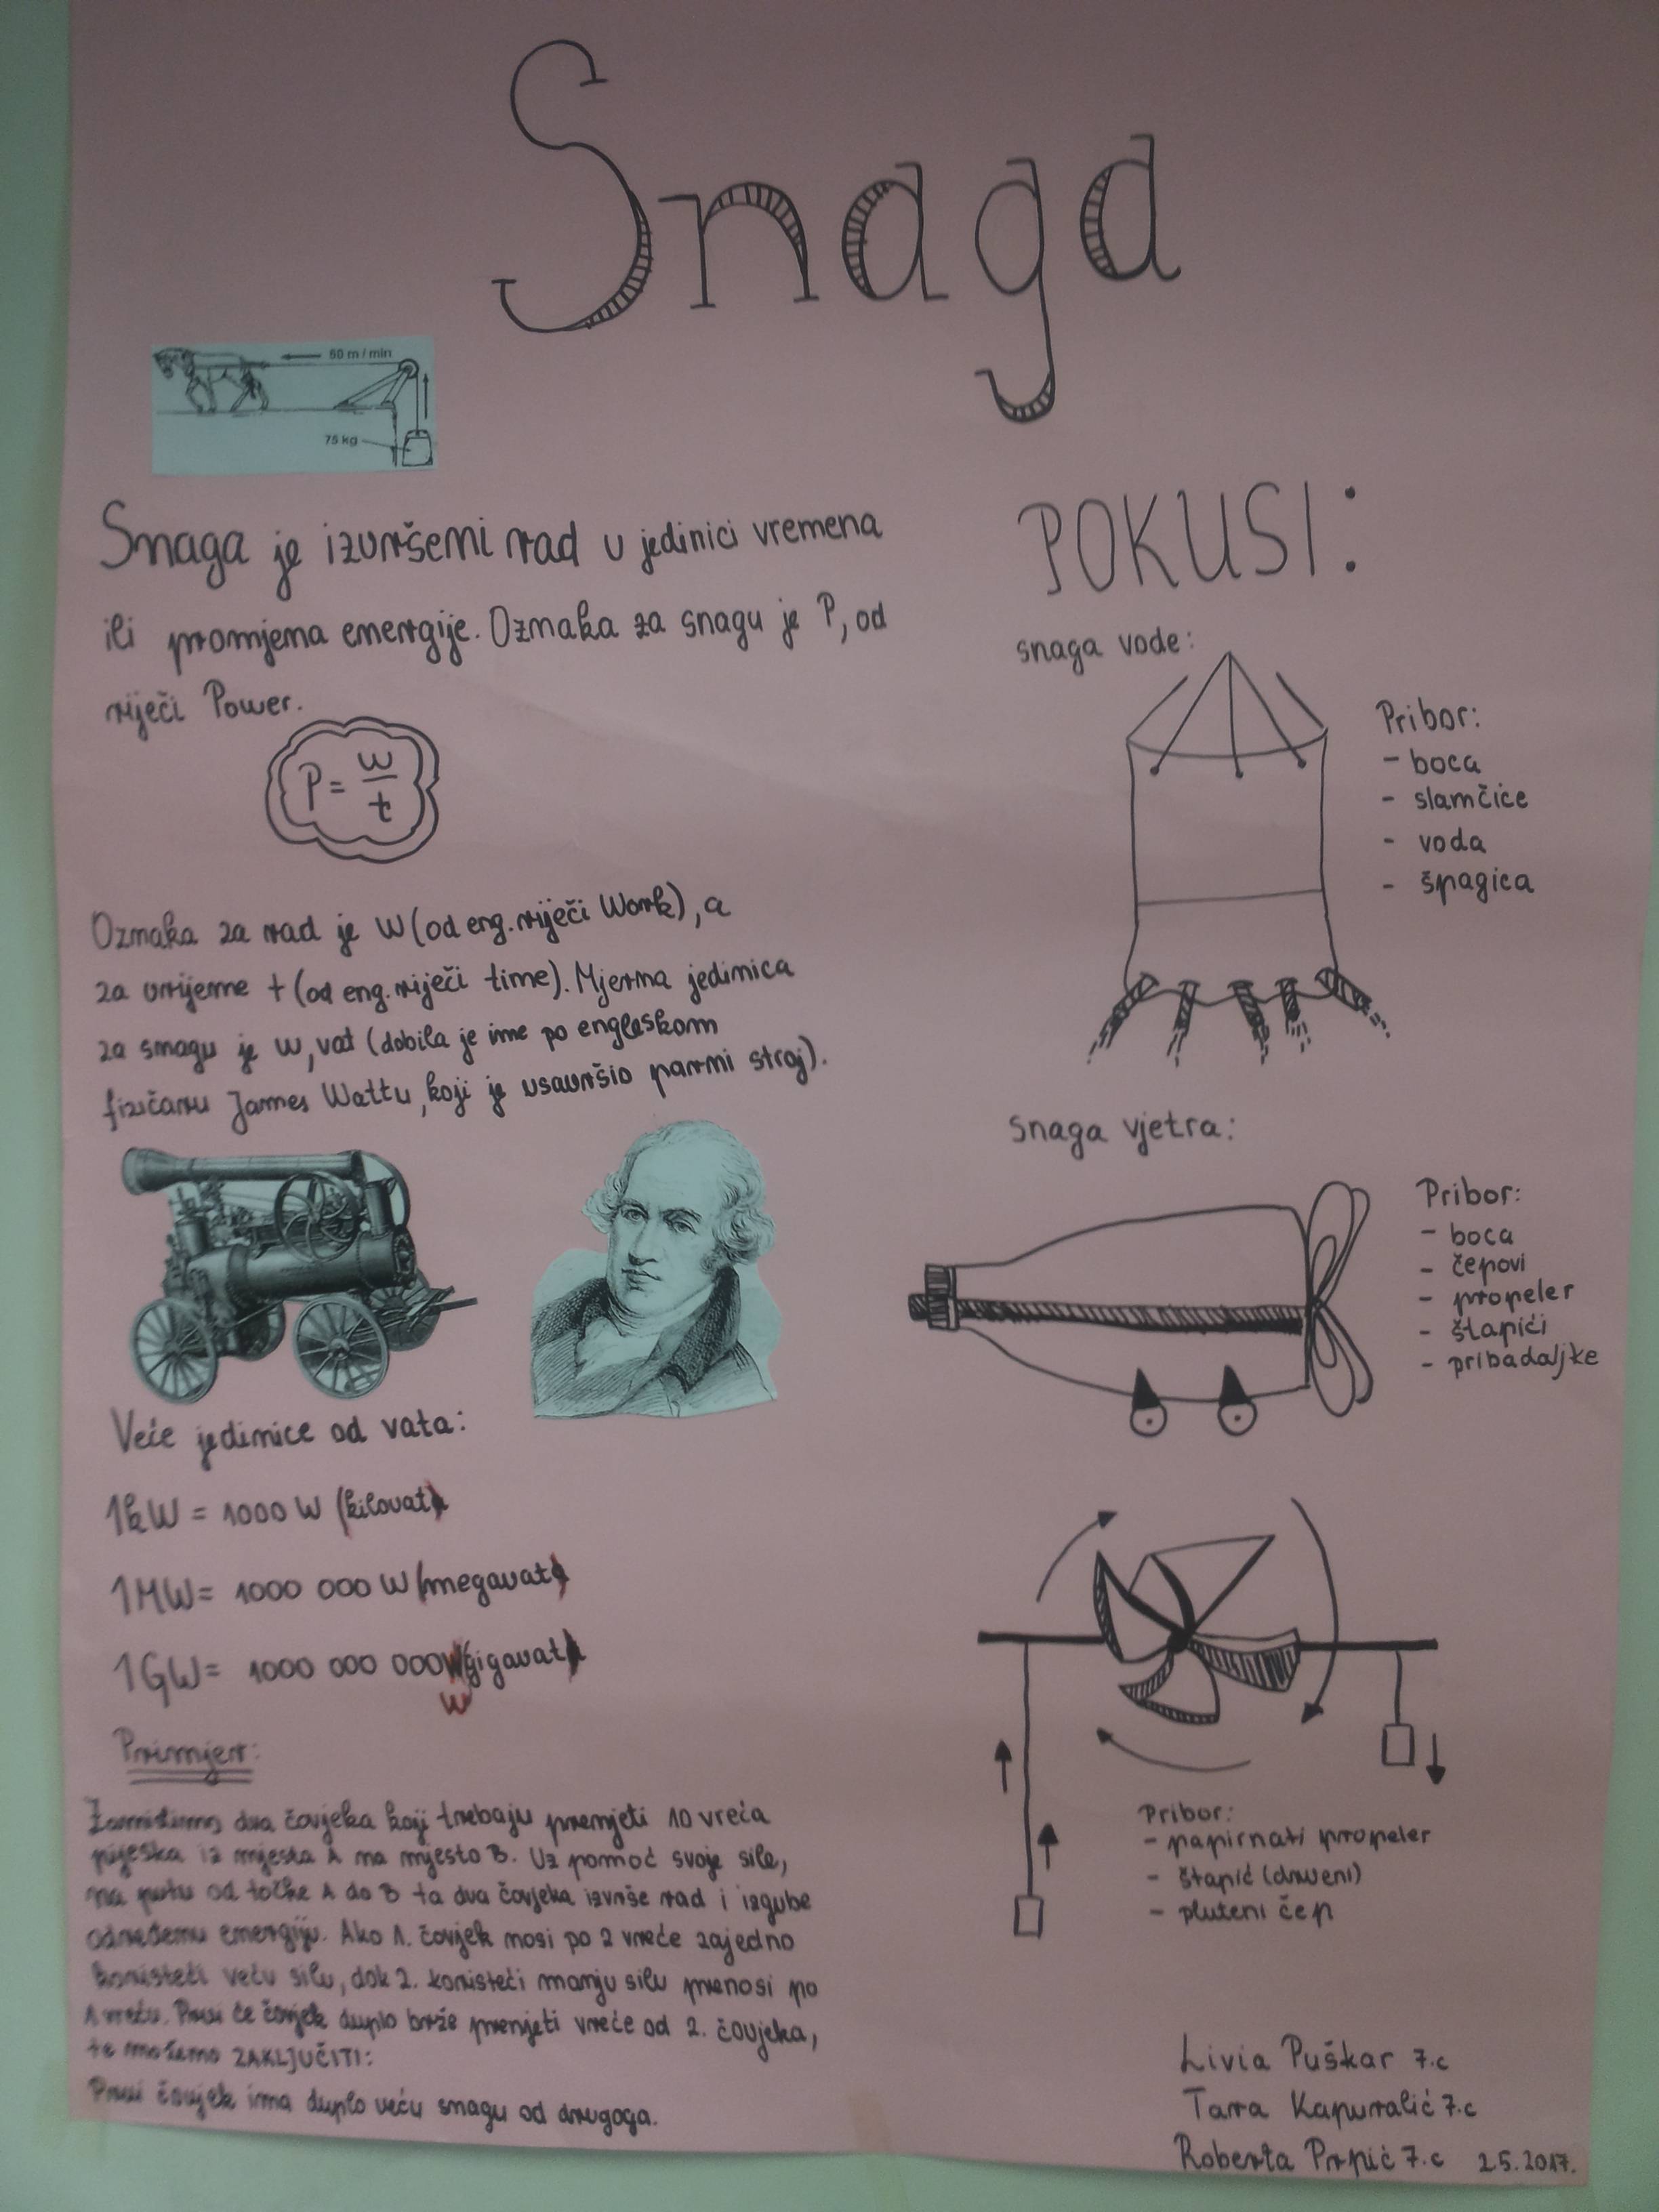 Snaga
60 m / min
75 kg
Snaga je izvršeni rad u jedinici vremena
ili promjena energije. Oznaka za snagu je P, od
riječi Power.
P = w/t
Oznaka za rad je W (od eng. riječi Work), a
za vrijeme t (od eng. riječi time). Mjerna jedinica
za snagu je W, vat (dobila je ime po engleskom
fizičaru James Wattu, koji je usavršio parni stroj).
Veće jedinice od vata:
1kW = 1000 W (kilovat)
1MW = 1000 000 W (megavat)
1GW = 1000 000 000 W (gigavat)
Primjer:
Zamislimo dva čovjeka koji trebaju premjeti 10 vreća
pijeska iz mjesta A na mjesto B. Uz pomoć svoje sile,
na putu od točke A do B ta dva čovjeka izvrše rad i izgube
određenu energiju. Ako 1. čovjek nosi po 2 vreće zajedno
koristeći veću silu, dok 2. koristeći manju silu prenosi po
1 vreću. Prvi će čovjek duplo brže prenjeti vreće od 2. čovjeka,
te možemo ZAKLJUČITI:
Prvi čovjek ima duplo veću snagu od drugoga.
POKUSI:
snaga vode:
Pribor:
- boca
- slamčice
- voda
- špagica
snaga vjetra:
Pribor:
- boca
- čepovi
- propeler
- štapići
- pribadaljke
Pribor:
- papirnati propeler
- štapić (drveni)
- pluteni čep
Livia Puškar 7.c
Tara Kapuralić 7.c
Roberta Prpić 7.c 2.5.2017.